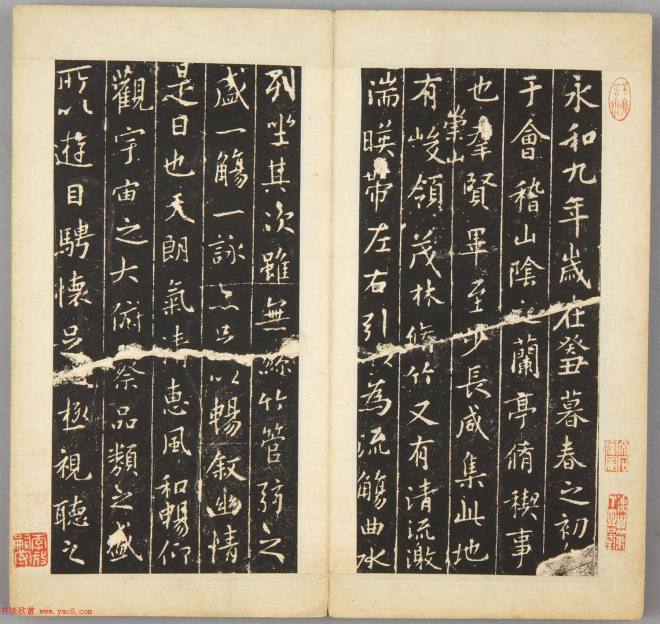 永和九年歲在癸丑暮春之初
于會稽山陰之蘭亭脩稧事
也羣賢畢至少長咸集此地
有崇山峻領茂林脩竹又有清流激
湍暎帶左右引以為流觴曲水
列坐其次雖無絲竹管弦之
盛一觴一詠亦足以暢叙幽情
是日也天朗氣清惠風和暢仰
觀宇宙之大俯察品類之盛
所以遊目騁懷足以極視聽之
书法欣赏 www.yac8.com